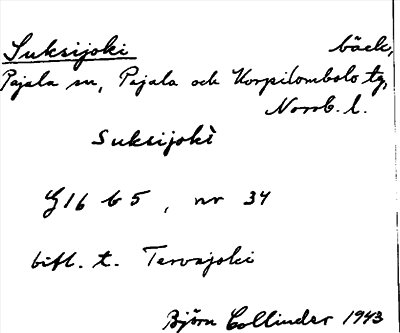 Suksijoki bäck,
Pajala sn, Pajala och Korpilombolo tg,
Norrb. l.
Suksijoki
G16 b5, nr 34
bifl. t. Tervajoki
Björn Collinder 1943